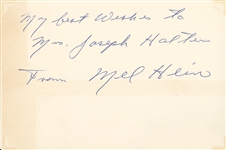 My best Wishes to
Mrs. Joseph Halter
From Mel Hein